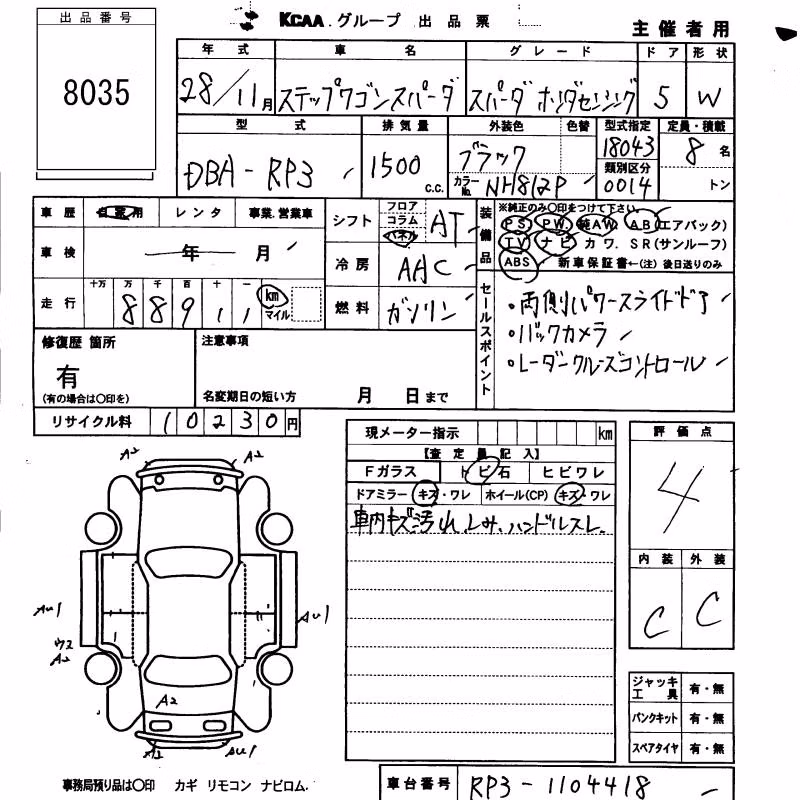 出品番号
8035
KCAA.グループ 出品票
主催者用
年式 車名 グレード ドア 形状
28/11月 ステップワゴンスパーダ スパーダ ホンダセンシング 5 W
型式 排気量 外装色 色替 型式指定 定員・積載
DBA-RP3 1500c.c. ブラック 18043 8名
カラーNo. NH812P 類別区分 0014 トン
車歴 自家用 レンタ 事業.営業車
シフト フロア コラム パネル AT
装備品 ※純正のみ〇印をつけて下さい
PS PW. 純AW A.B(エアバック)
TV ナビ カワ. SR(サンルーフ)
ABS 新車保証書←(注)後日送りのみ
車検 年 月
冷房 AAC
走行 十万 万 千 百 十 一
8 8 9 1 1 km マイル
燃料 ガソリン
セールスポイント
・両側パワースライドドア
・バックカメラ
・レーダークルーズコントロール
修復歴 箇所
有
(有の場合は〇印を)
注意事項
名変期日の短い方 月 日まで
リサイクル料 10230円
現メーター指示 km
【査定員記入】
Fガラス トビ石 ヒビワレ
ドアミラー キズ・ワレ ホイール(CP) キズ・ワレ
車内キズ汚れ、シミ、ハンドルスレ
評価点
4
内装 外装
C C
A2 A2
AU1 AU1
A2
A2
AU1
ジャッキ工具 有・無
パンクキット 有・無
スペアタイヤ 有・無
事務局預り品は〇印 カギ リモコン ナビロム.
車台番号 RP3-1104418